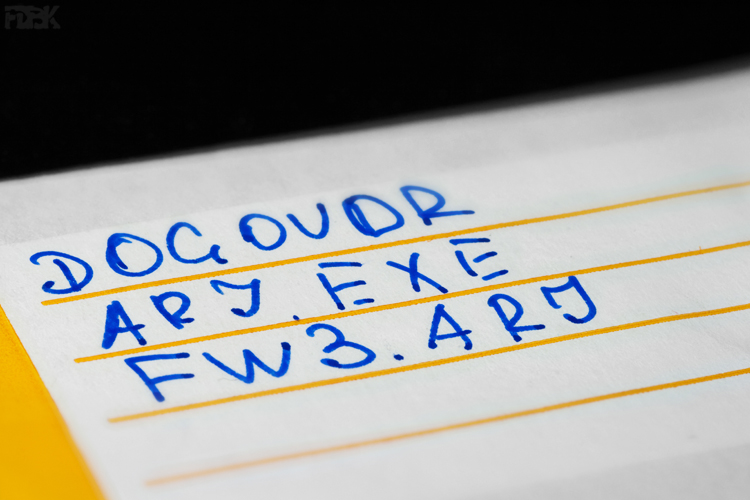 FDISK
DOGOVOR
ARJ.EXE
FW3.ARJ